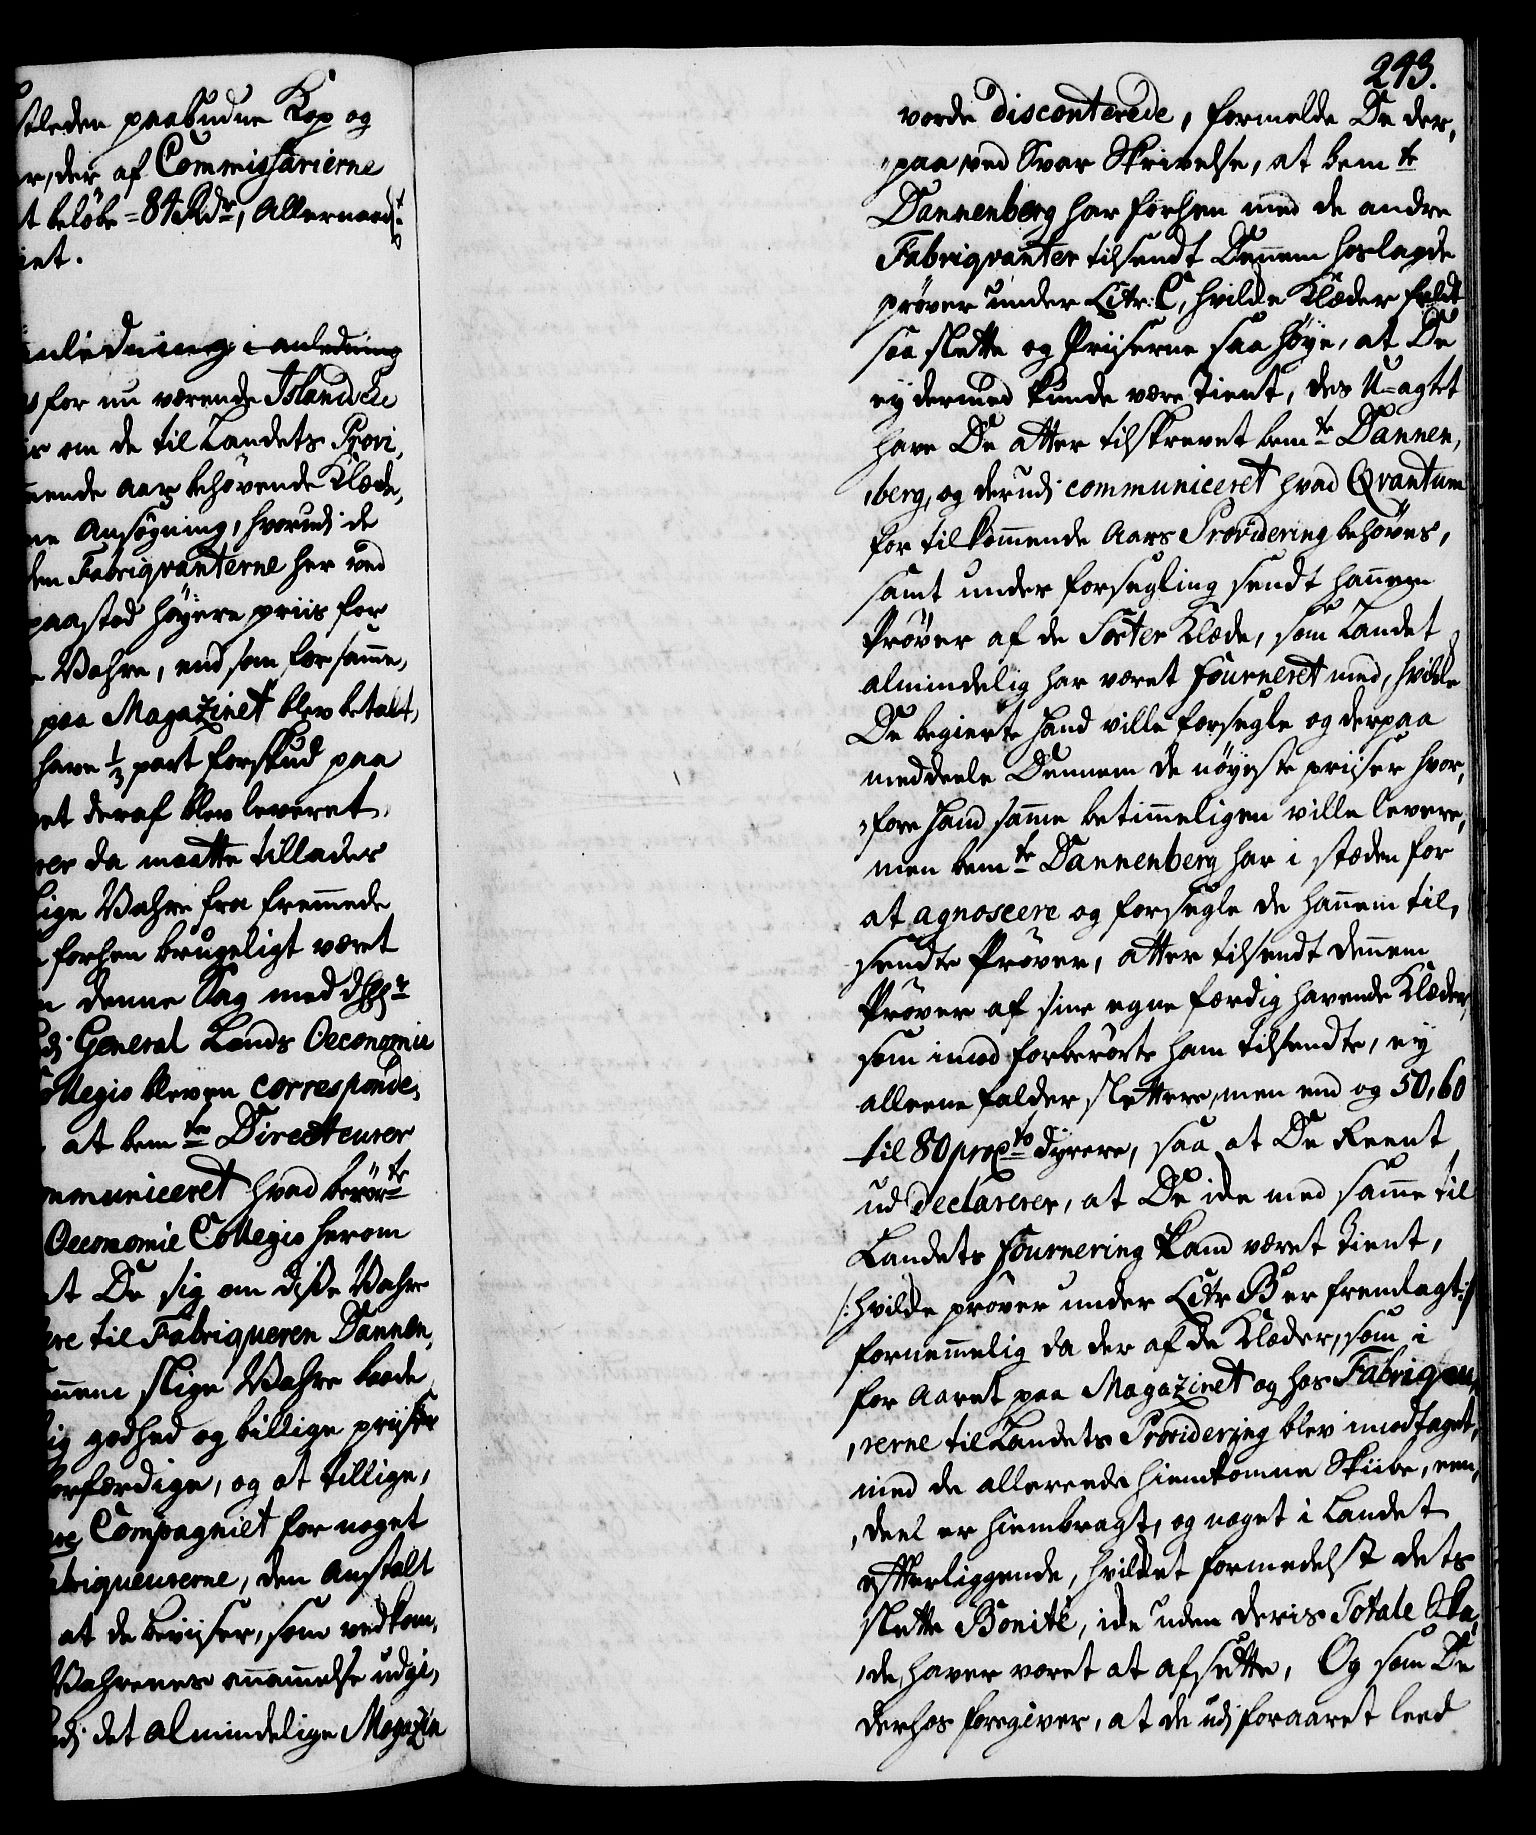 stleden paabudne Kop og
r, der af Commissarierne
t beløbe = 84 Rdr, Allernaadst
iet.
anledning i anledning
for nu værende Islandske
r om de til Landets Provi,
mende Aar behøvende Klæde,
ne Ansøgning, hvorudj de
den Fabriqvanterne her ved
paastod høyere priis for
Vahre, end som for samme,
paa Magazinet blev betalt,
have 1/3 part forskud paa
et deraf blev leveret,
rer da maatte tillades
lige Vahre fra fremmede
forhen brugeligt været
denne Sag med
dj General Lands Oeconomie
Collegio bleven corresponde,
at bemte Directeurer
ommuniceret hvad berørte
Oeconomie Collegio herom
t De sig om disse Vahre
ere til Fabriqueren Dannen,
nnem slige Vahre baade
ig godhed og billige priiser
forfærdige, og at tillige,
Compagniet for noget
abriqueurerne, den Anstalt
at de beviiser, som vedkom,
Vahrenes annammelse udgi,
dj det almindelige Magazin
243.
vorde disconterede, formelde De der,
,paa ved Svar Skrivelse, at bemte
Dannenberg har forhen med de andre
Fabriqvanter tilsendt Dennem hoslagde
prøver under Litr: C, hvilke Klæder faldt
saa slette og Priiserne saa høye, at De
ey dermed kunde være tient, des U-agtet
have De atter tilskrevet bemte Dannen,
,berg, og derudj communiceret hvad Qvantum
for tilkommende Aars Providering behøves,
samt under forsegling sendt hannem
Prøver af de Sorter Klæde, som Landet
almindelig har været fourneret med, hvilke
De begierte Hand ville forsegle og derpaa
meddeele Dennem de nøyeste priiser hvor,
,fore Hand samme betimmeligen ville levere,
men bemte Dannenberg har i stæden for
at agnoscere og forsegle de hannem til,
sendte Prøver, atter tilsendt dennem
Prøver af sine egne færdig havende Klæder,
som imod forberørte ham tilsendte, ey
alleene falder slettere, men end og 50, 60
til 80 procto dyrere, saa at De Reent
ud declarerer, at De icke med samme til
Landets fournering kand været tient,
/: hvilke prøver under Litr B er fremlagt :/
fornemmelig da der af de Klæder, som i
for Aaret paa Magazinet og hos Fabriqueu,
,rerne til Landets Providering blev imodtaget,
med de allereede hiemkomne Skibe, een,
,deel er hiembragt, og noget i Landet
efterliggende, hvilket formedelst dets
slette Bonité, icke uden deris Totale Ska,
,de, haver været at afsette, Og som De
derhos foregiver, at de udj foraaret leed